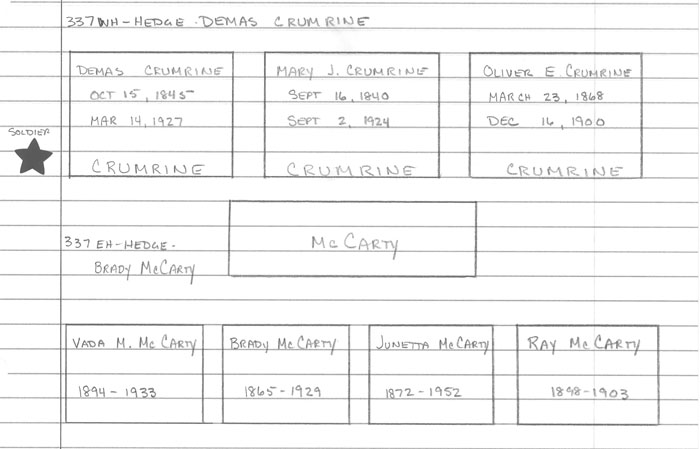 337 WH-HEDGE - DEMAS CRUMRINE
DEMAS CRUMRINE
OCT 15, 1845
MAR 14, 1927
CRUMRINE
MARY J. CRUMRINE
SEPT 16, 1840
SEPT 2, 1924
CRUMRINE
OLIVER E. CRUMRINE
MARCH 23, 1868
DEC 16, 1900
CRUMRINE
SOLDIER
337 EH-HEDGE-
BRADY McCARTY
McCARTY
VADA M. McCARTY
1894 - 1933
BRADY McCARTY
1865 - 1929
JUNETTA McCARTY
1872 - 1952
RAY McCARTY
1898 - 1903